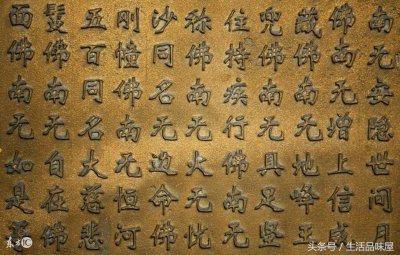 南无安隐世间月
佛南无增上信威
藏佛南无地峰王
兜佛南无具足坚
住持疾行佛南无
称佛南无
沙同名无边命佛
刚幢佛南无恒河
五百同名大慈悲
髮佛南无自在佛
面佛南无如是
头条号 / 生活品味屋